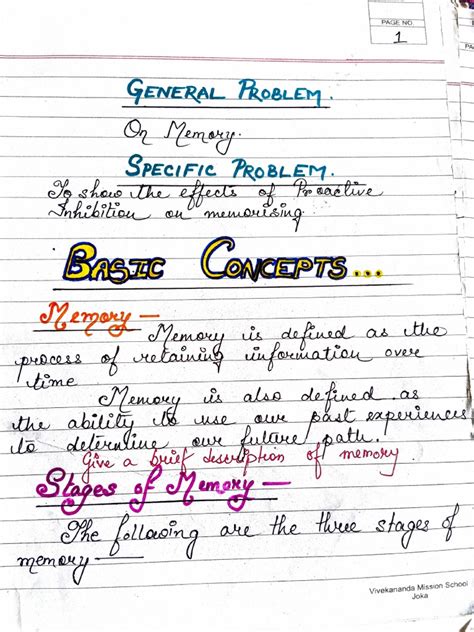 PAGE NO.
1
GENERAL PROBLEM.
On Memory.
SPECIFIC PROBLEM.
To show the effects of Proactive
Inhibition on memorising.
BASIC CONCEPTS...
Memory —
Memory is defined as the
process of retaining information over
time
Memory is also defined as
the ability to use our past experiences
to determine our future path.
Give a brief description of memory.
Stages of Memory —
The following are the three stages of
memory —
Vivekananda Mission School
Joka